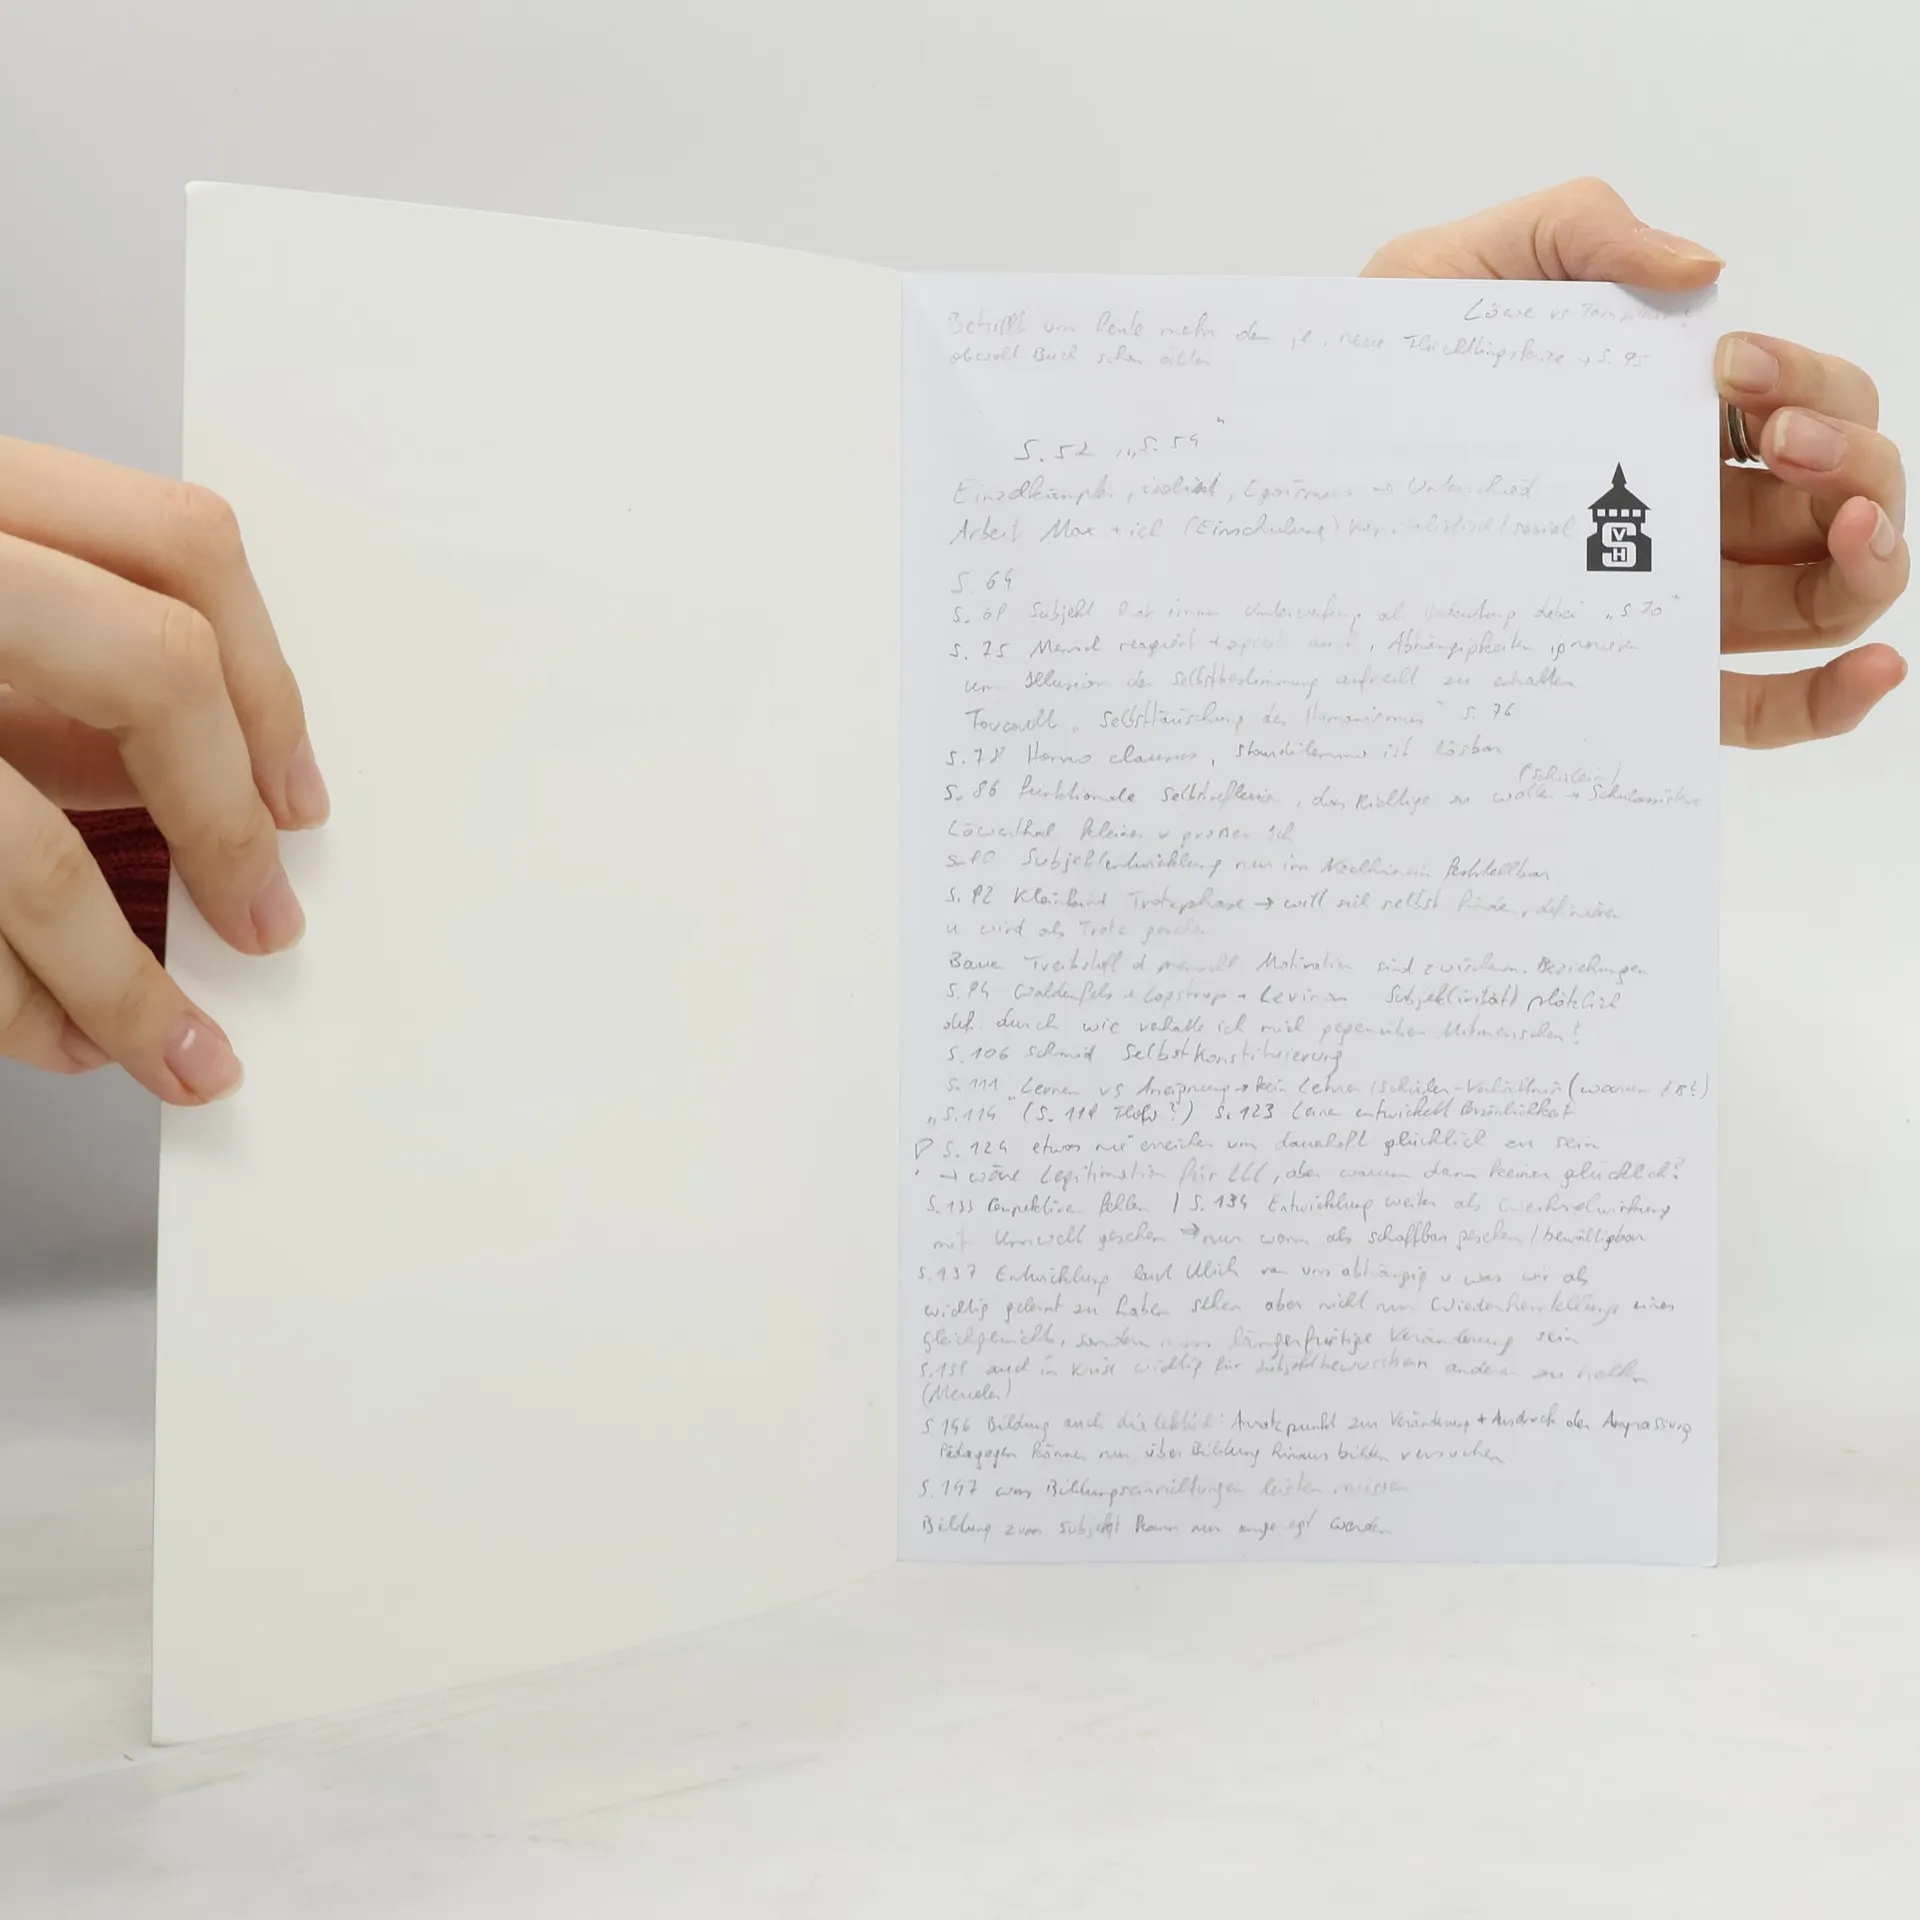 Löwe vs
Betrifft uns heute mehr den je, neue Flüchtlingskrise → S. 95
obwohl Buch schon älter
S. 52 „S. 54"
Einzelkämpfer, isoliert, Egoismus → Unterschied
Arbeit Max + ich (Einschulung) kapitalistisch / sozial
VSH
S. 64
S. 68 Subjekt hat immer Unterwerfung als Bedeutung dabei „S. 70"
S. 75 Mensch reagiert + agiert auch, Abhängigkeiten ignorieren
um Illusion der Selbstbestimmung aufrecht zu erhalten
Foucault „Selbsttäuschung des Humanismus" S. 76
S. 78 Homo clausus, ist lösbar
(Schülein)
S. 86 funktionale Selbstreflexion, das Richtige zu wollen → Schulassistenz
Löwenthal kleines v großes Ich
S. 90 Subjektentwicklung nur im Nachhinein feststellbar
S. 92 Kleinkind Trotzphase → will sich selbst finden, definieren
u wird als Trotz gesehen
Bauer Treibstoff d menschl Motivation sind zwischenm. Beziehungen
S. 94 Waldenfels + Løgstrup + Levinas Subjekt(ivität) plötzlich
def. durch wie verhalte ich mich gegenüber Mitmenschen?
S. 106 Schmid Selbstkonstituierung
S. 111 „Lernen vs Aneignung → kein Lehrer/Schüler-Verhältnis (warum EB?)
„S. 114 (S. 118 Flow?) S. 123 Lernen entwickelt Persönlichkeit
S. 124 etwas nie erreichen um dauerhaft glücklich zu sein
→ wäre Legitimation für LLL, aber warum dann keiner glücklich?
S. 133 fehlen / S. 134 Entwicklung weiter als Wechselwirkung
mit Umwelt gesehen → nur wenn als schaffbar gesehen / bewältigbar
S. 137 Entwicklung laut Ulich von uns abhängig u was wir als
wichtig gelernt zu haben sehen aber nicht nur Wiederherstellung eines
Gleichgewichts, sondern muss längerfristige Veränderung sein
S. 138 auch in Krise wichtig für Subjektbewusstsein andern zu helfen
S. 146 Bildung auch dialektisch: Ansatzpunkt zur Veränderung + Ausdruck der Anpassung
Pädagogen können nur über Bildung hinaus bilden versuchen
S. 147 was Bildungseinrichtungen leisten müssen
Bildung zum Subjekt kann nur angeregt werden